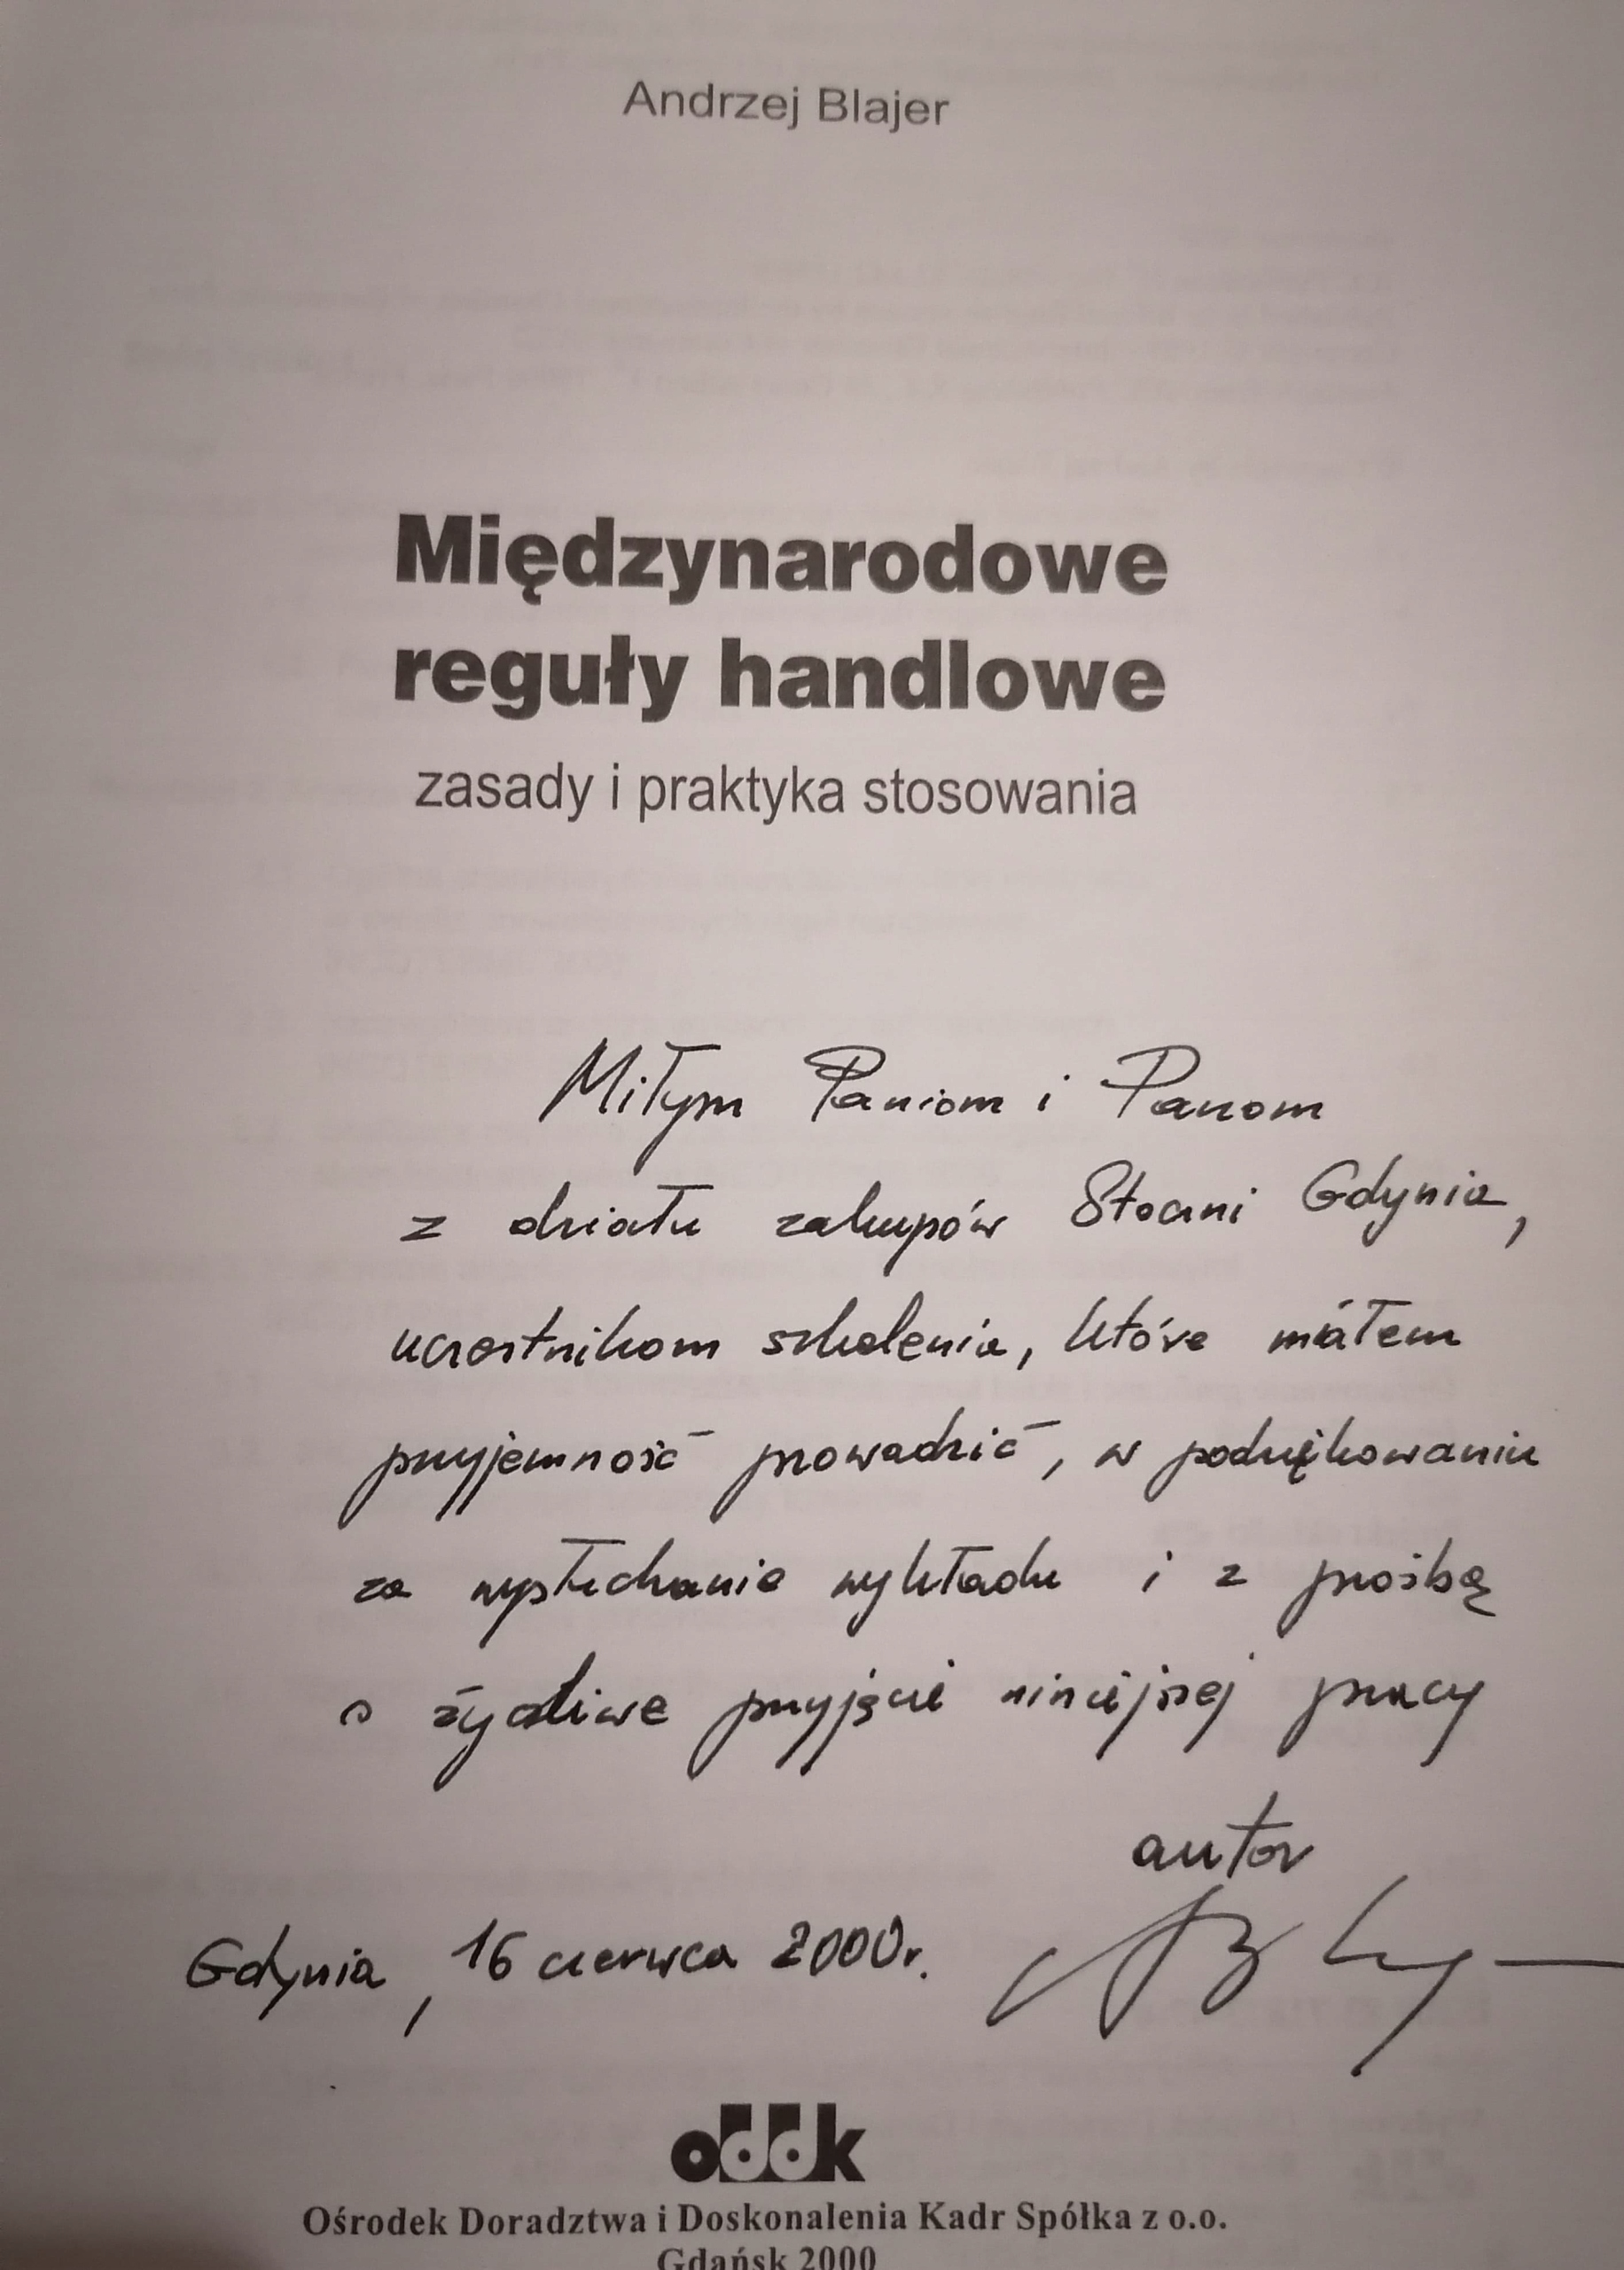 Andrzej Blajer
Międzynarodowe
reguły handlowe
zasady i praktyka stosowania
Miłym Paniom i Panom
z działu zakupów Stoczni Gdynia,
uczestnikom szkolenia, które miałem
przyjemność prowadzić, w podziękowaniu
za wysłuchanie wykładu i z prośbą
o życzliwe przyjęcie niniejszej pracy
autor
Gdynia, 16 czerwca 2000r.
oddk
Ośrodek Doradztwa i Doskonalenia Kadr Spółka z o.o.
Gdańsk 2000